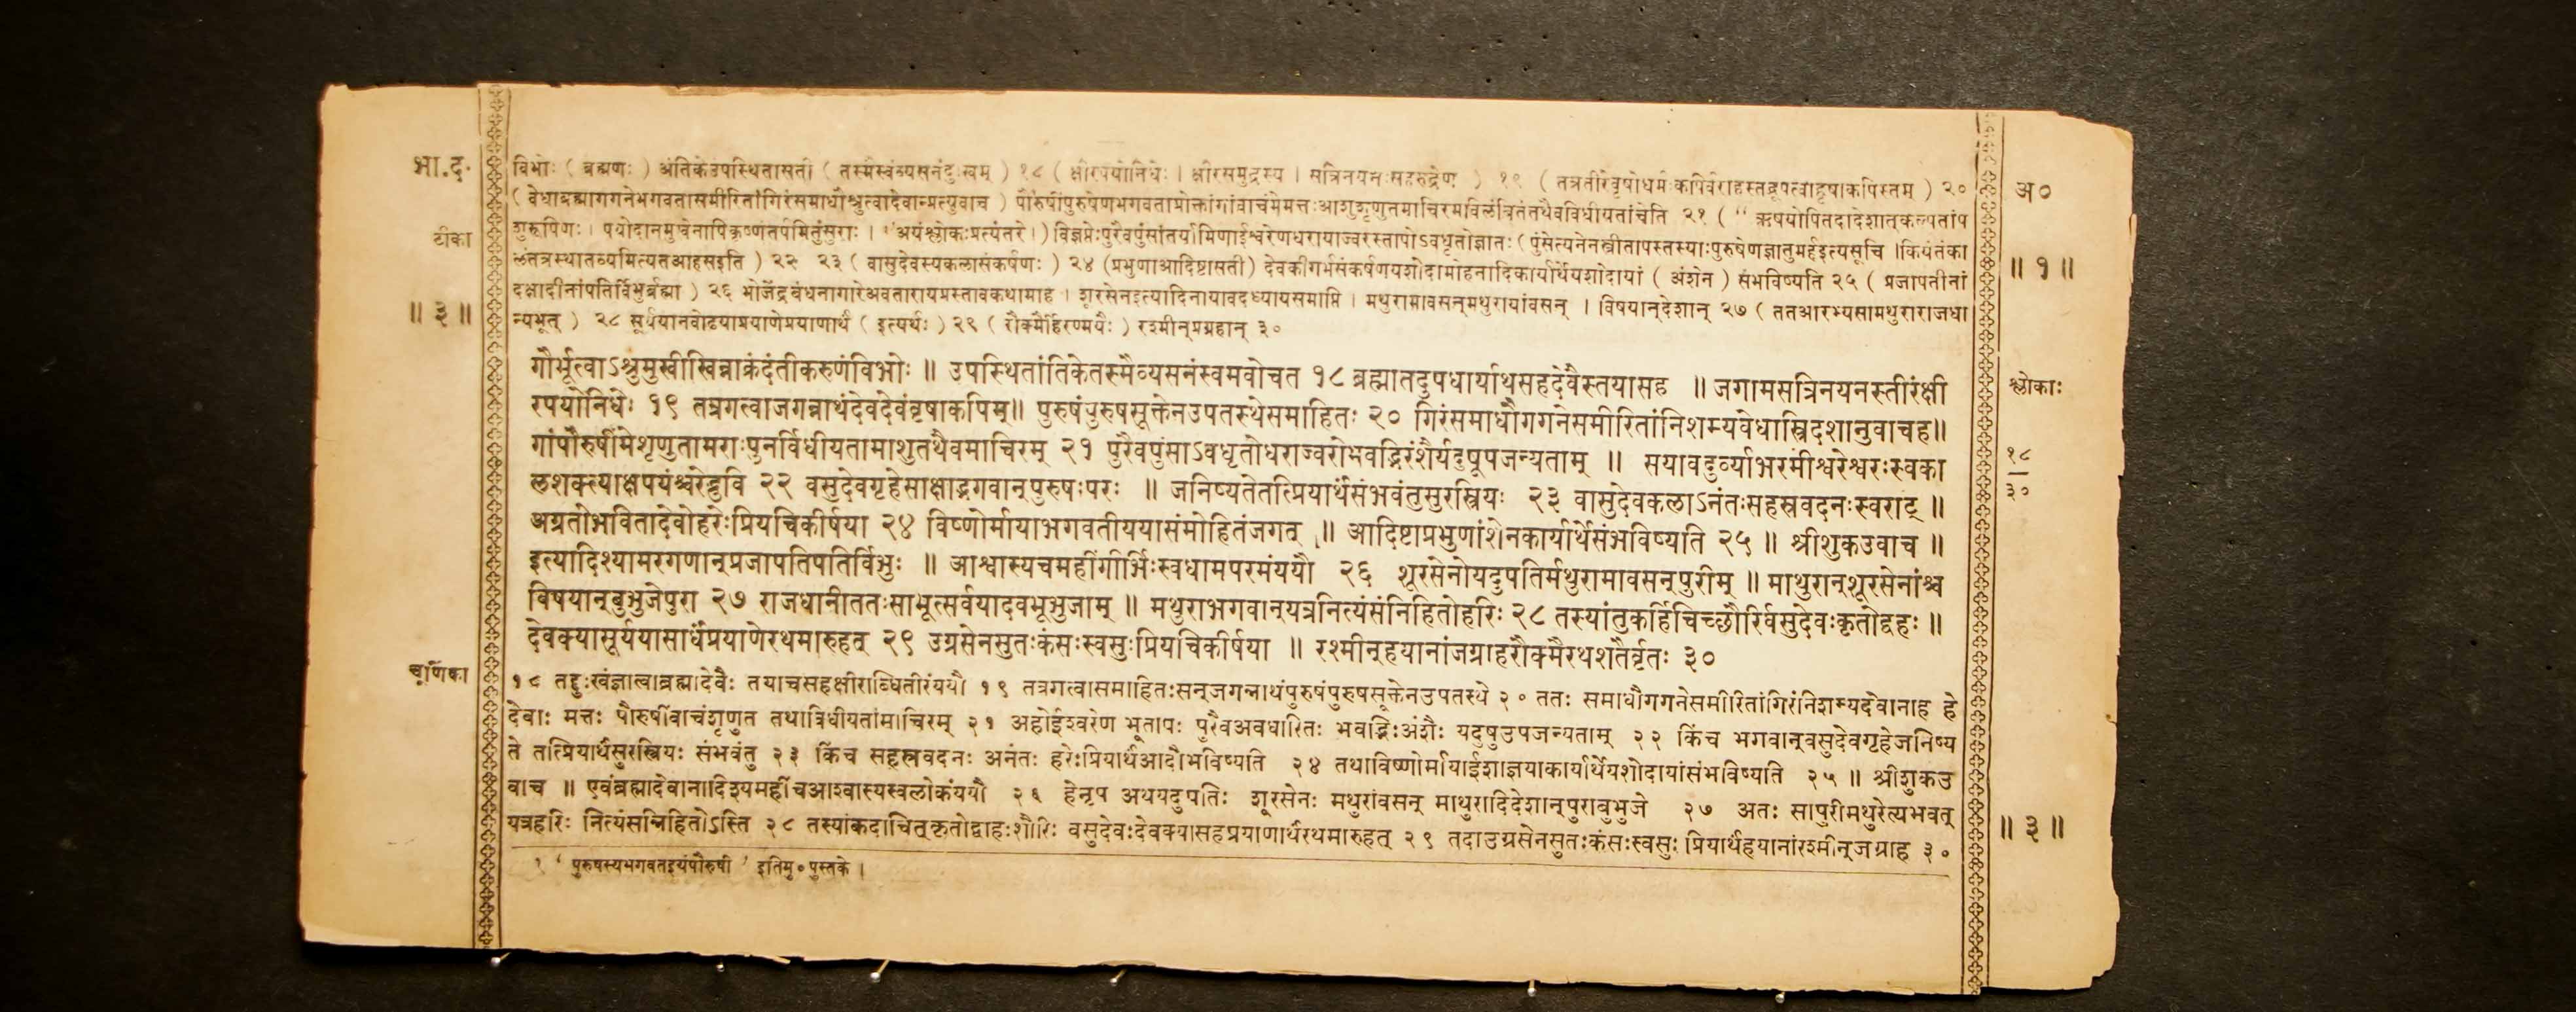 भा.द.
टीका
॥ ३ ॥
विभोः ( ब्रह्मणः ) अंतिकेउपस्थितासती ( तस्मैस्वंव्यसनंदुःखम् ) १८ ( क्षीरपयोनिधेः । क्षीरसमुद्रस्य । सत्रिनयनःसहरुद्रेण ) १९ ( तत्रतीरेवृषोधर्मःकपिर्वराहस्तद्रूपत्वाद्वृषाकपिस्तम् ) २०
( वेधाब्रह्मागगनेभगवतासमीरितांगिरंसमाधौश्रुत्वादेवान्प्रत्युवाच ) पौरुषींपुरुषेणभगवताप्रोक्तांगांवाचंमेमत्तःआशुशृणुतमाचिरमविलंबितंतथैवविधीयतांचेति २१ ( “ ऋषयोपितदादेशात्कल्पतांप
शुरूपिणः । पयोदानमुखेनापिकृष्णंतर्पयितुंसुराः । ” अयंश्लोकःप्रत्यंतरे । ) विज्ञप्तेःपुरैवपुंसांतर्यामिणाईश्वरेणधरायाज्वरस्तापोऽवधृतोज्ञातः ( पुंसेत्यनेनस्त्रीतापस्तस्याःपुरुषेणज्ञातुमर्हइत्यसूचि । कियंतंका
लंतत्रस्थातव्यमित्यतआहसइति ) २२ २३ ( वासुदेवस्यकलासंकर्षणः ) २४ (प्रभुणाआदिष्टासती) देवकीगर्भसंकर्षणयशोदामोहनादिकार्यार्थेयशोदायां ( अंशेन ) संभविष्यति २५ ( प्रजापतीनां
दक्षादीनांपतिर्विभुर्ब्रह्मा ) २६ भोजेंद्रबंधनागारेअवतारायप्रस्तावकथामाह । शूरसेनइत्यादिनायावदध्यायसमाप्ति । मथुरामावसन्मथुरायांवसन् । विषयान्देशान् २७ ( ततआरभ्यसामथुराराजधा
न्यभूत् ) २८ सूर्ययानवोढयाप्रयाणेप्रयाणार्थं ( इत्यर्थः ) २९ ( रौक्मैर्हिरण्मयैः ) रश्मीन्प्रग्रहान् ३०
गौर्भूत्वाऽश्रुमुखीखिन्नाक्रंदंतीकरुणंविभोः ॥ उपस्थितांतिकेतस्मैव्यसनंस्वमवोचत १८ ब्रह्मातदुपधार्याथसहदेवैस्तयासह ॥ जगामसत्रिनयनस्तीरंक्षी
रपयोनिधेः १९ तत्रगत्वाजगन्नाथंदेवदेवंवृषाकपिम्॥ पुरुषंपुरुषसूक्तेनउपतस्थेसमाहितः २० गिरंसमाधौगगनेसमीरितांनिशम्यवेधास्त्रिदशानुवाचह॥
गांपौरुषींमेशृणुतामराःपुनर्विधीयतामाशुतथैवमाचिरम् २१ पुरैवपुंसाऽवधृतोधराज्वरोभवद्भिरंशैर्यदुषूपजन्यताम् ॥ सयावदुर्व्याभरमीश्वरेश्वरःस्वका
लशक्त्याक्षपयंश्चरेद्भुवि २२ वसुदेवगृहेसाक्षाद्भगवान्पुरुषःपरः ॥ जनिष्यतेतत्प्रियार्थंसंभवंतुसुरस्त्रियः २३ वासुदेवकलाऽनंतःसहस्रवदनःस्वराट् ॥
अग्रतोभवितादेवोहरेःप्रियचिकीर्षया २४ विष्णोर्मायाभगवतीययासंमोहितंजगत् ॥ आदिष्टाप्रभुणांशेनकार्यार्थेसंभविष्यति २५ ॥ श्रीशुकउवाच ॥
इत्यादिश्यामरगणान्प्रजापतिपतिर्विभुः ॥ आश्वास्यचमहींगीर्भिःस्वधामपरमंययौ २६ शूरसेनोयदुपतिर्मथुरामावसन्पुरीम् ॥ माथुरान्शूरसेनांश्च
विषयान्बुभुजेपुरा २७ राजधानीततःसाभूत्सर्वयादवभूभुजाम् ॥ मथुराभगवान्यत्रनित्यंसंनिहितोहरिः २८ तस्यांतुकर्हिचिच्छौरिर्वसुदेवःकृतोद्वहः ॥
देवक्यासूर्ययासार्धंप्रयाणेरथमारुहत् २९ उग्रसेनसुतःकंसःस्वसुःप्रियचिकीर्षया ॥ रश्मीन्हयानांजग्राहरौक्मैरथशतैर्वृतः ३०
चूर्णिका
१८ तद्दुःखंज्ञात्वाब्रह्मादेवैः तयाचसहक्षीराब्धितीरंययौ १९ तत्रगत्वासमाहितःसन्जगन्नाथंपुरुषंपुरुषसूक्तेनउपतस्थे २० ततः समाधौगगनेसमीरितांगिरंनिशम्यदेवानाह हे
देवाः मत्तः पौरुषींवाचंशृणुत तथाविधीयतांमाचिरम् २१ अहोईश्वरेण भूतापः पुरैवअवधारितः भवद्भिःअंशैः यदुषुउपजन्यताम् २२ किंच भगवान्वसुदेवगृहेजनिष्य
ते तत्प्रियार्थंसुरस्त्रियः संभवंतु २३ किंच सहस्रवदनः अनंतः हरेःप्रियार्थंआदौभविष्यति २४ तथाविष्णोर्मायाईशाज्ञयाकार्यार्थेयशोदायांसंभविष्यति २५ ॥ श्रीशुकउ
वाच ॥ एवंब्रह्मादेवानादिश्यमहींचआश्वास्यस्वलोकंययौ २६ हेनृप अथयदुपतिः शूरसेनः मथुरांवसन् माथुरादिदेशान्पुराबुभुजे २७ अतः सापुरीमथुरेत्यभवत्
यत्रहरिः नित्यंसन्निहितोऽस्ति २८ तस्यांकदाचित्कृतोद्वाहःशौरिः वसुदेवःदेवक्यासहप्रयाणार्थंरथमारुहत् २९ तदाउग्रसेनसुतःकंसःस्वसुः प्रियार्थंहयानांरश्मीन्जग्राह ३०
१ ‘ पुरुषस्यभगवतइयंपौरुषी ’ इतिमु० पुस्तके ।
अ०
॥ १ ॥
श्लोकाः
१८
३०
॥ ३ ॥